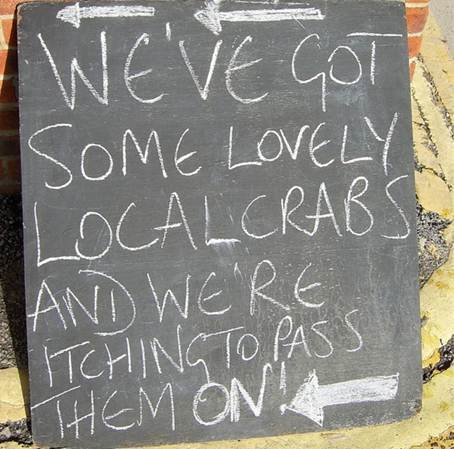 WE'VE GOT
SOME LOVELY
LOCAL CRABS
AND WE'RE
ITCHING TO PASS
THEM ON!